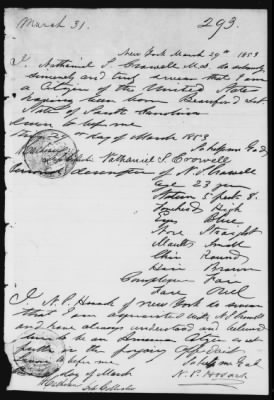 March 31.
293.
New York March 29th 1853
I, Nathaniel S Crowell M.D. do solemnly
sincerely and truly swear that I am
a Citizen of the United States
having been born Beaufort Dist.
State of South Carolina
Sworn to before me
this 29 day of March 1853
So help me God
Nathaniel S. Crowell
Personal description of N. S. Crowell
Age 23 years
Stature 5 feet 8.
Forehead High
Eyes Blue
Nose Straight
Mouth Small
Chin Round
Hair Brown
Complexion Fair
Face Oval
I N. P. Hosack of New York do swear
that I am acquainted with N S Crowell
and have always understood and believed
him to be an American Citizen as set
forth in the foregoing Affidavit
Sworn before me So help me God
day of March
N. P. Hosack
Dep Collector